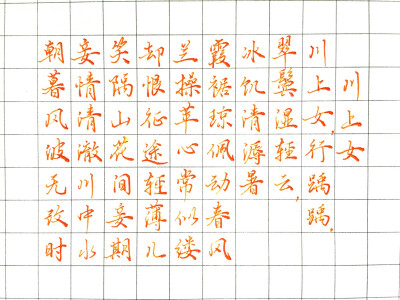 川上女
川上女,行踽踽。
翠鬓湿轻云,
冰肌清溽暑
霞裾琼佩动春风
兰操苹心常似缕
却恨征途轻薄儿
笑隅山花间妾期
妾情清澈川中水
朝暮风波无改时